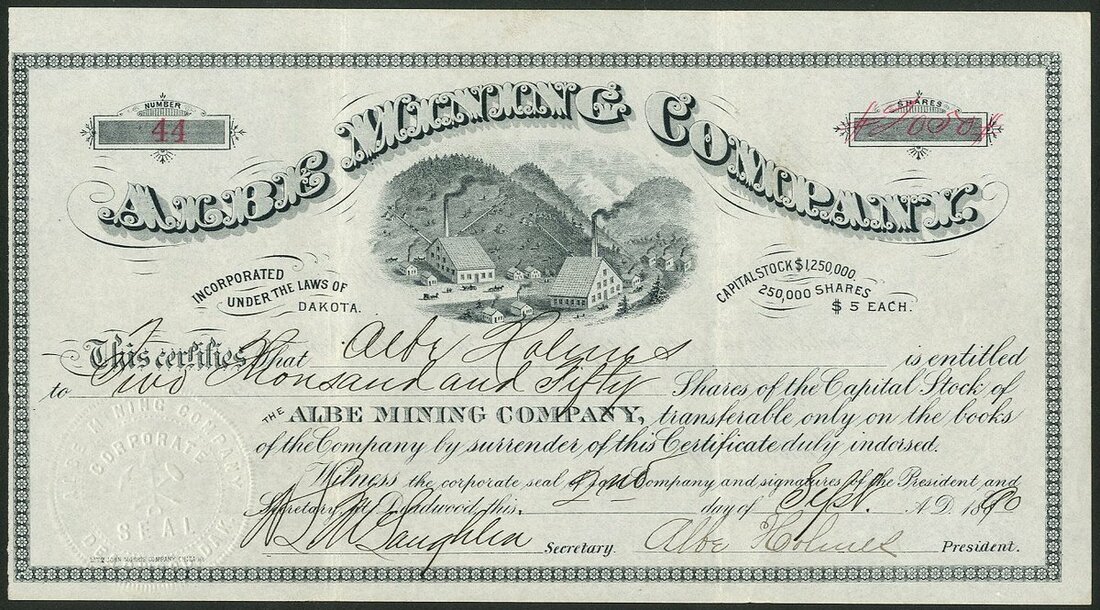 NUMBER
44
SHARES
2050
ALBE MINING COMPANY.
INCORPORATED
UNDER THE LAWS OF
DAKOTA.
CAPITAL STOCK $1,250,000.
250,000 SHARES
$5 EACH.
This certifies that Albe Holmes is entitled
to Two Thousand and Fifty Shares of the Capital Stock of
THE ALBE MINING COMPANY, transferable only on the books
of the Company by surrender of this Certificate duly indorsed.
Witness the corporate seal of said Company and signatures of the President and
Secretary, at Deadwood this 2nd day of Sept. A.D. 1880
McLaughlin Secretary. Albe Holmes President.
ALBE MINING COMPANY
CORPORATE
SEAL
DAK.